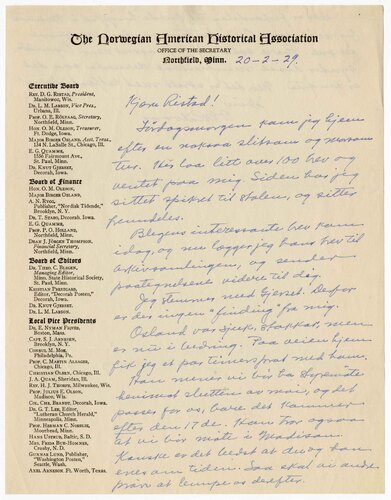 The Norwegian American Historical Association
OFFICE OF THE SECRETARY
Northfield, Minn. 20-2-29.
Executive Board
REV. D. G. RISTAD, President,
Manitowoc, Wis.
DR. L. M. LARSON, Vice Pres.,
Urbana, Ill.
PROF. O. E. RÖLVAAG, Secretary,
Northfield, Minn.
HON. O. M. OLESON, Treasurer,
Ft. Dodge, Iowa.
MAJOR BIRGER OSLAND, Asst. Treas.,
134 N. LaSalle St., Chicago, Ill.
E. G. QUAMME,
1556 Fairmount Ave.,
St. Paul, Minn.
DR. KNUT GJERSET,
Decorah, Iowa.
Board of Finance
HON. O. M. OLESON,
MAJOR BIRGER OSLAND,
A. N. RYGG,
Publisher, "Nordisk Tidende",
Brooklyn, N. Y.
DR. T. STABO, Decorah, Iowa.
E. G. QUAMME,
PROF. P. O. HOLLAND,
Northfield, Minn.
DEAN J. JÖRGEN THOMPSON,
Financial Secretary,
Northfield, Minn.
Board of Editors
DR. THEO. C. BLEGEN,
Managing Editor,
Minn. State Historical Society,
St. Paul, Minn.
KRISTIAN PRESTGARD,
Editor, "Decorah Posten,"
Decorah, Iowa.
DR. KNUT GJERSET,
DR. L. M. LARSON.
Local Vice Presidents
DR. E. NYMAN FIGVED,
Boston, Mass.
CAPT. S. J. ARNESEN,
Brooklyn, N. Y.
CONSUL M. MOE,
Philadelphia, Pa.
PROF. C. MARTIN ALSAGER,
Chicago, Ill.
CHRISTIAN OLSEN, Chicago, Ill.
J. A. QUAM, Sheridan, Ill.
REV. H. J. THORPE, Milwaukee, Wis.
PROF. JULIUS E. OLSON,
Madison, Wis.
COL. CHR. BRANDT, Decorah, Iowa.
DR. G. T. LEE, Editor,
"Lutheran Church Herald,"
Minneapolis, Minn.
PROF. HERMAN C. NORDLIE,
Moorhead, Minn.
HANS USTRUD, Baltic, S. D.
MRS. FRIDA BUE-HOMNES,
Crosby, N. D.
GUNNAR LUND, Publisher,
"Washington Posten,"
Seattle, Wash.
AXEL ARNESON, Ft. Worth, Texas.
Kjære Ristad!
Lördagmorgen kom jeg hjem
efter en naksaa slitsom
tur. Her laa litt over 100 brev og
ventet paa mig. Siden har jeg
sittet spikret til stolen, og sitter
fremdeles.
Blegens interessante brev kom
idag, og nu lægger jeg hans brev til
arkivsamlingen, og sender
postegnelsene videre til dig.
Jeg stemmer med Gjerset. Derfor
er der ingen "finding" fra mig.
Osland var sjuk, stakkar, men
er nu i bedring. Paa veien hjem
fik jeg et par timers prat med ham.
Han mener vi bör ha styremöte
henimot slutten av mai, og det
passer for os, bare det kommer
efter den 17de. Han tror ogsaa
at vi bör möte i Madison.
Kanske er det bedst at du og han
enes om tiden. Saa skal vi andre
pröve at lempe os derefter.